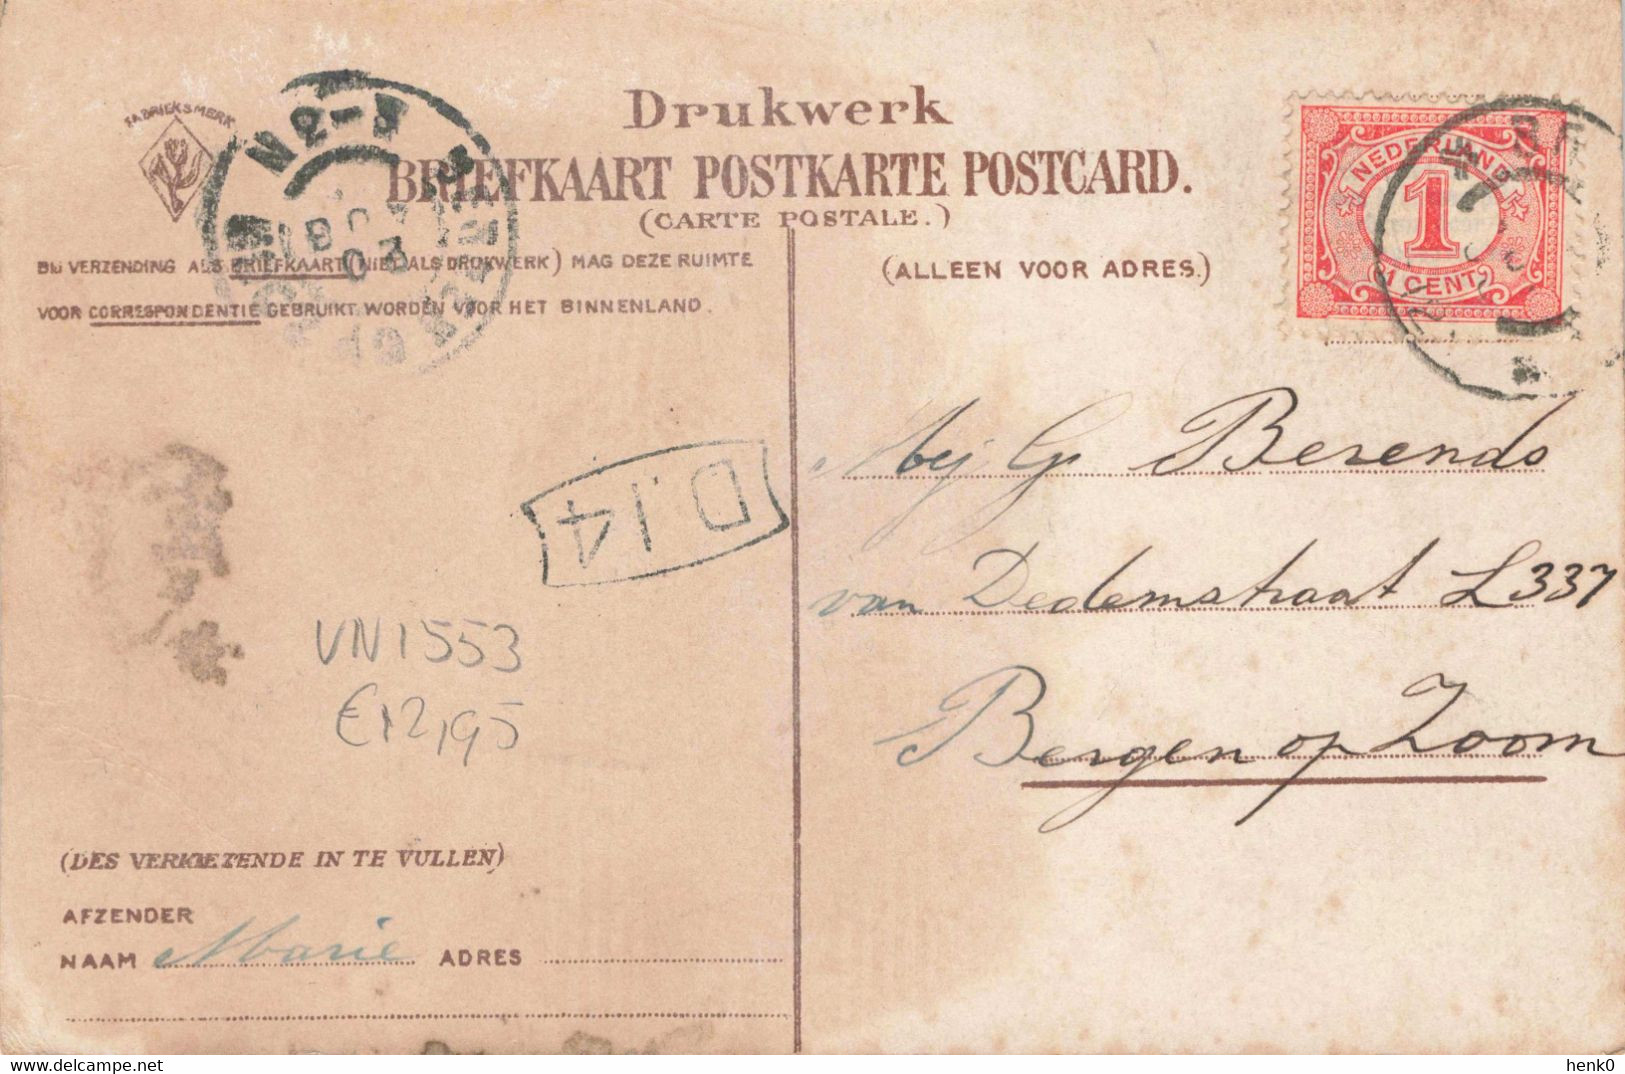 FABRIEKSMERK
Drukwerk
BRIEFKAART POSTKARTE POSTCARD.
(CARTE POSTALE.)
BIJ VERZENDING ALS BRIEFKAART (NIET ALS DRUKWERK) MAG DEZE RUIMTE
VOOR CORRESPONDENTIE GEBRUIKT WORDEN VOOR HET BINNENLAND.
(ALLEEN VOOR ADRES.)
NEDERLAND
1
1 CENT
N 2-3
D.14
Mej G. Berends
van Dedemstraat L337
Bergen op Zoom
VN1553
€12,95
(DES VERKIEZENDE IN TE VULLEN)
AFZENDER
NAAM Marie ADRES
delcampe.net
henk0